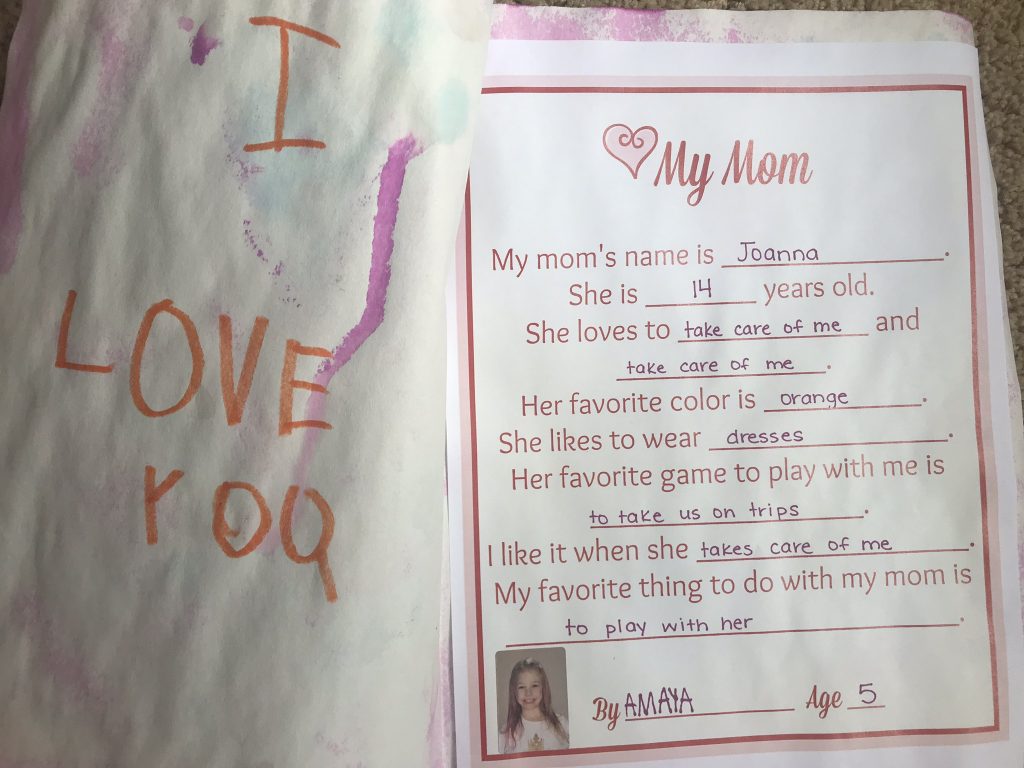 I
LOVE
YOQ
My Mom
My mom's name is Joanna.
She is 14 years old.
She loves to take care of me and
take care of me.
Her favorite color is orange.
She likes to wear dresses.
Her favorite game to play with me is
to take us on trips.
I like it when she takes care of me.
My favorite thing to do with my mom is
to play with her.
By AMAYA Age 5